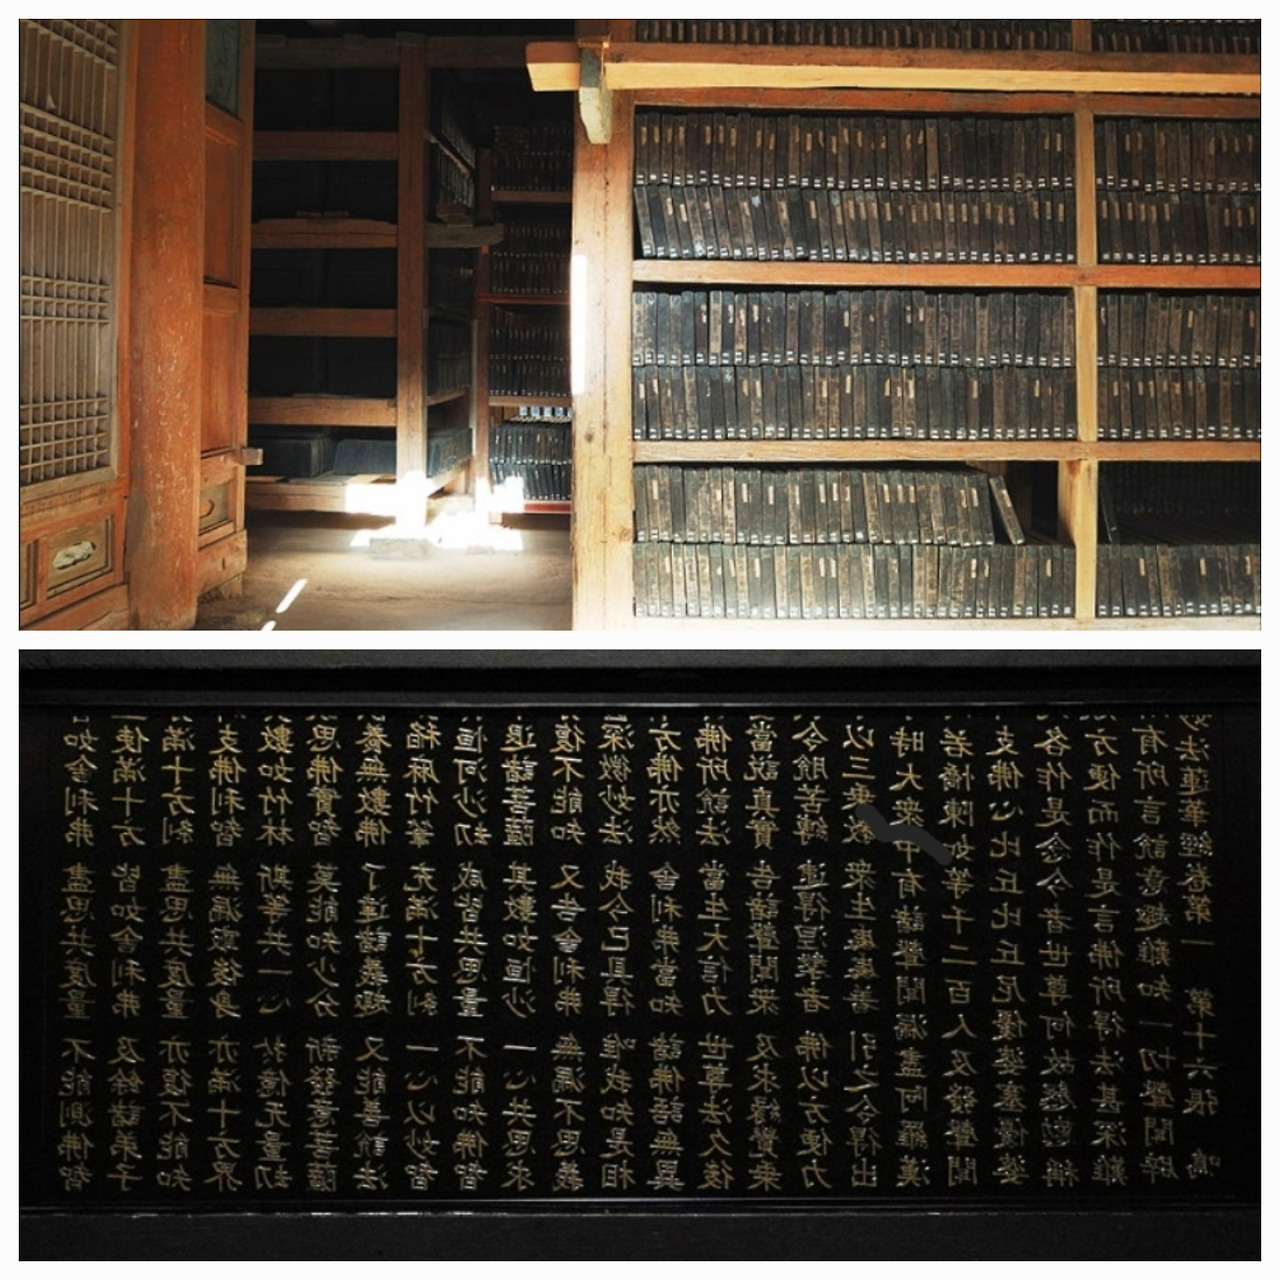 如舍利弗 盡思共度量 不能測佛智
使滿十方 皆如舍利弗 及餘諸弟子
滿十方刹 盡思共度量 亦復不能知
支佛利智 無漏最後身 亦滿十方界
數如竹林 斯等共一心 於億无量劫
思佛實智 莫能知少分 新發意菩薩
養無數佛 了達諸義趣 又能善說法
稻麻竹葦 充滿十方刹 一心以妙智
恒河沙劫 咸皆共思量 不能知佛智
退諸菩薩 其數如恒沙 一心共思求
復不能知 又告舍利弗 無漏不思義
深微妙法 我今已具得 唯我知是相
方佛亦然 舍利弗當知 諸佛語無異
佛所說法 當生大信力 世尊法久後
當說真實 告諸聲聞衆 及求緣覺乘
令脫苦縛 逮得涅槃者 佛以方便力
以三乘教 衆生處處著 引之令得出
時大衆中有諸聲聞漏盡阿羅漢
若憍陳如等千二百人及發聲聞
支佛心比丘比丘尼優婆塞優婆
各作是念今者世尊何故慇懃稱
方便而作是言佛所得法甚深難
有所言說意趣難知一切聲聞辟
妙法蓮華經卷第一 第十六張 鳴